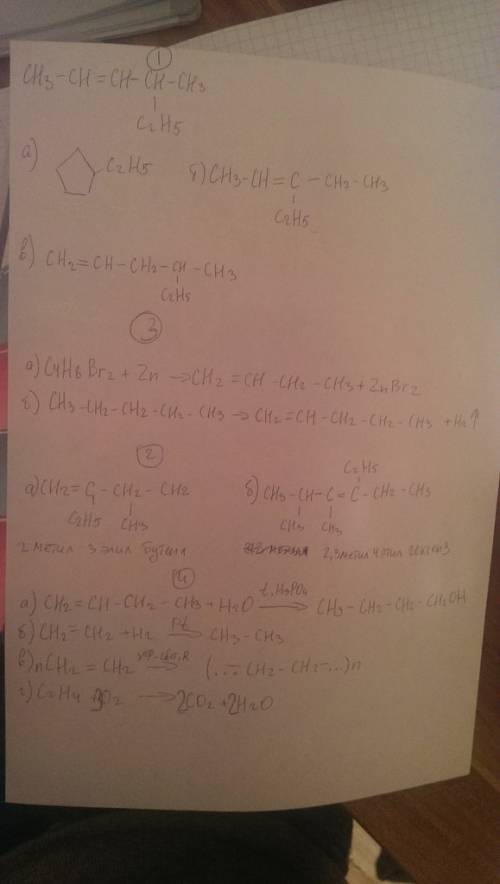 1
CH3-CH=CH-CH-CH3
C2H5
а) C2H5 б) CH3-CH=C-CH2-CH3
C2H5
в) CH2=CH-CH2-CH-CH3
C2H5
3
а) C4H8Br2+Zn→CH2=CH-CH2-CH3+ZnBr2
б) CH3-CH2-CH2-CH2-CH3→CH2=CH-CH2-CH2-CH3+H2↑
2
C2H5
а) CH2=C-CH2-CH2 б) CH3-CH-C=C-CH2-CH3
C2H5 CH3 CH3 CH3
2 метил 3 этил бутена 2,3 метил 4 этил гексен3
4
а) CH2=CH-CH2-CH3+H2O t,H3PO4→ CH3-CH2-CH2-CH2OH
б) CH2=CH2+H2 Pt→ CH3-CH3
в) nCH2=CH2 → (...-CH2-CH2-...)n
г) C2H4+3O2→2CO2+2H2O